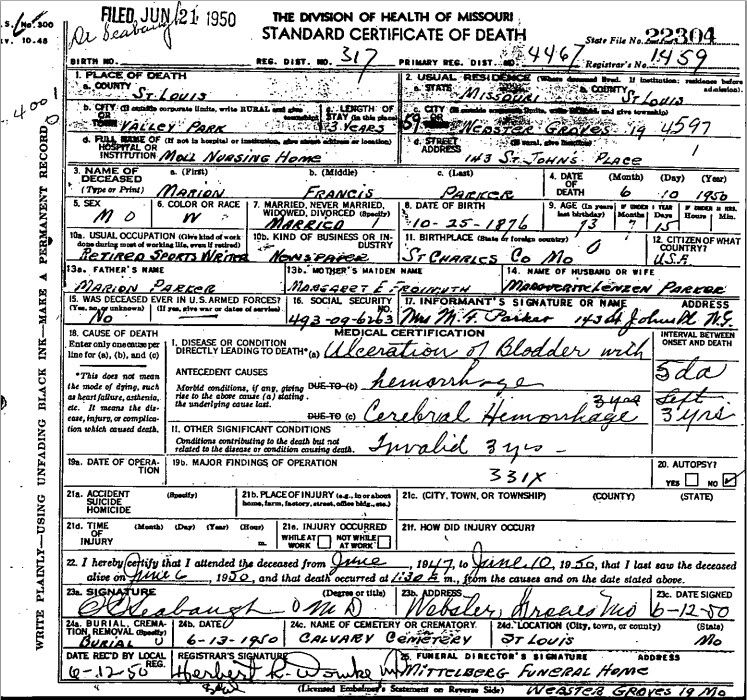 FILED JUN 21 1950
THE DIVISION OF HEALTH OF MISSOURI
Dr Seabaugh
STANDARD CERTIFICATE OF DEATH
S. No. 300
v. 10-48
State File No. 22304
BIRTH NO. REG. DIST. NO. 317 PRIMARY REG. DIST. NO. 4467 Registrar's No. 1459
1. PLACE OF DEATH
a. COUNTY St. Louis
2. USUAL RESIDENCE (Where deceased lived. If institution: residence before admission).
a. STATE Missouri b. COUNTY St Louis
b. CITY (If outside corporate limits, write RURAL and give township) OR TOWN Valley Park
c. LENGTH OF STAY (in this place) 3 Years
c. CITY OR Webster Groves 19 4597
d. FULL NAME OF (If not in hospital or institution, give street address or location) HOSPITAL OR INSTITUTION Moll Nursing Home
d. STREET ADDRESS (If rural, give location) 143 St. Johns Place
3. NAME OF DECEASED (Type or Print) a. (First) Marion b. (Middle) Francis c. (Last) Parker
4. DATE OF DEATH (Month) (Day) (Year) 6 10 1950
5. SEX M
6. COLOR OR RACE W
7. MARRIED, NEVER MARRIED, WIDOWED, DIVORCED (Specify) Married
8. DATE OF BIRTH 10-25-1876
9. AGE (In years last birthday) 73 IF UNDER 1 YEAR Months 7 Days 15 IF UNDER 24 HRS. Hours Min.
10a. USUAL OCCUPATION (Give kind of work done during most of working life, even if retired) Retired Sports Writer
10b. KIND OF BUSINESS OR INDUSTRY Newspaper
11. BIRTHPLACE (State or foreign country) St Charles Co Mo
12. CITIZEN OF WHAT COUNTRY? U.S.A.
13a. FATHER'S NAME Marion Parker
13b. MOTHER'S MAIDEN NAME Margaret E
14. NAME OF HUSBAND OR WIFE Marguerite Lenzen Parker
15. WAS DECEASED EVER IN U.S. ARMED FORCES? (Yes, no, or unknown) (If yes, give war or dates of service) No
16. SOCIAL SECURITY NO. 493-09-6263
17. INFORMANT'S SIGNATURE OR NAME ADDRESS
Mrs M. F. Parker 143 St Johns Pl W.G.
18. CAUSE OF DEATH
Enter only one cause per line for (a), (b), and (c)
MEDICAL CERTIFICATION
INTERVAL BETWEEN ONSET AND DEATH
I. DISEASE OR CONDITION DIRECTLY LEADING TO DEATH* (a) Ulceration of Bladder with
*This does not mean the mode of dying, such as heart failure, asthenia, etc. It means the disease, injury, or complication which caused death.
ANTECEDENT CAUSES
Morbid conditions, if any, giving rise to the above cause (a) stating the underlying cause last.
DUE TO (b) hemorrhage 5 da
3 yrs
DUE TO (c) Cerebral Hemorrhage 3 yrs
II. OTHER SIGNIFICANT CONDITIONS
Conditions contributing to the death but not related to the disease or condition causing death. Invalid 3 yrs -
19a. DATE OF OPERATION
19b. MAJOR FINDINGS OF OPERATION
331X
20. AUTOPSY?
YES NO
21a. ACCIDENT SUICIDE HOMICIDE (Specify)
21b. PLACE OF INJURY (e.g., in or about home, farm, factory, street, office bldg., etc.)
21c. (CITY, TOWN, OR TOWNSHIP) (COUNTY) (STATE)
21d. TIME OF INJURY (Month) (Day) (Year) (Hour) m.
21e. INJURY OCCURRED WHILE AT WORK NOT WHILE AT WORK
21f. HOW DID INJURY OCCUR?
22. I hereby certify that I attended the deceased from June, 1947, to June 10, 1950, that I last saw the deceased
alive on June 6, 1950, and that death occurred at 1:30 m., from the causes and on the date stated above.
23a. SIGNATURE (Degree or title) Seabaugh M D
23b. ADDRESS Webster Groves Mo
23c. DATE SIGNED 6-12-50
24a. BURIAL, CREMATION, REMOVAL (Specify) Burial
24b. DATE 6-13-1950
24c. NAME OF CEMETERY OR CREMATORY Calvary Cemetery
24d. LOCATION (City, town, or county) (State) St Louis Mo
DATE REC'D BY LOCAL REG. 6-12-50
REGISTRAR'S SIGNATURE Herbert R.
25. FUNERAL DIRECTOR'S SIGNATURE ADDRESS
Mittelberg Funeral Home
(Licensed Embalmer's Statement on Reverse Side) Webster Groves 19 Mo
WRITE PLAINLY—USING UNFADING BLACK INK—MAKE A PERMANENT RECORD